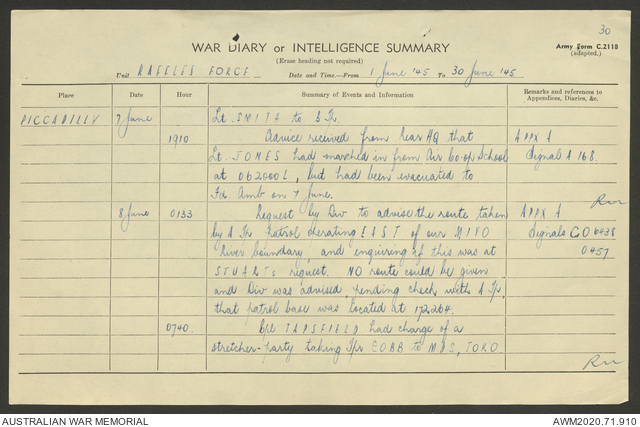 30
WAR DIARY or INTELLIGENCE SUMMARY
(Erase heading not required)
Army Form C.2118
(adapted.)
Unit RAFFLES FORCE Date and Time—From 1 June '45 To 30 June '45
Place Date Hour Summary of Events and Information Remarks and references to Appendices, Diaries, &c.
PICCADILLY 7 June Lt. SMITH to B Tp.
1910 Advice received from Rear HQ that APPX A
Lt. JONES had marched in from Air Co-op School Signal A 168.
at 062000L, but had been evacuated to
Fd. Amb on 7 June.
8 June 0133 Request by Div to advise the route taken APPX A
by A Tp Patrol operating EAST of our MIVO Signals GO 6438
River boundary, and enquiring if this was at 0457
STUARTs request. NO route could be given
and Div was advised, pending check with A Tp,
that patrol base was located at 172264.
0740. Cpl TAPSFIELD had charge of a
stretcher-party taking Tpr COBB to MDS, TOKO.
AUSTRALIAN WAR MEMORIAL AWM2020.71.910